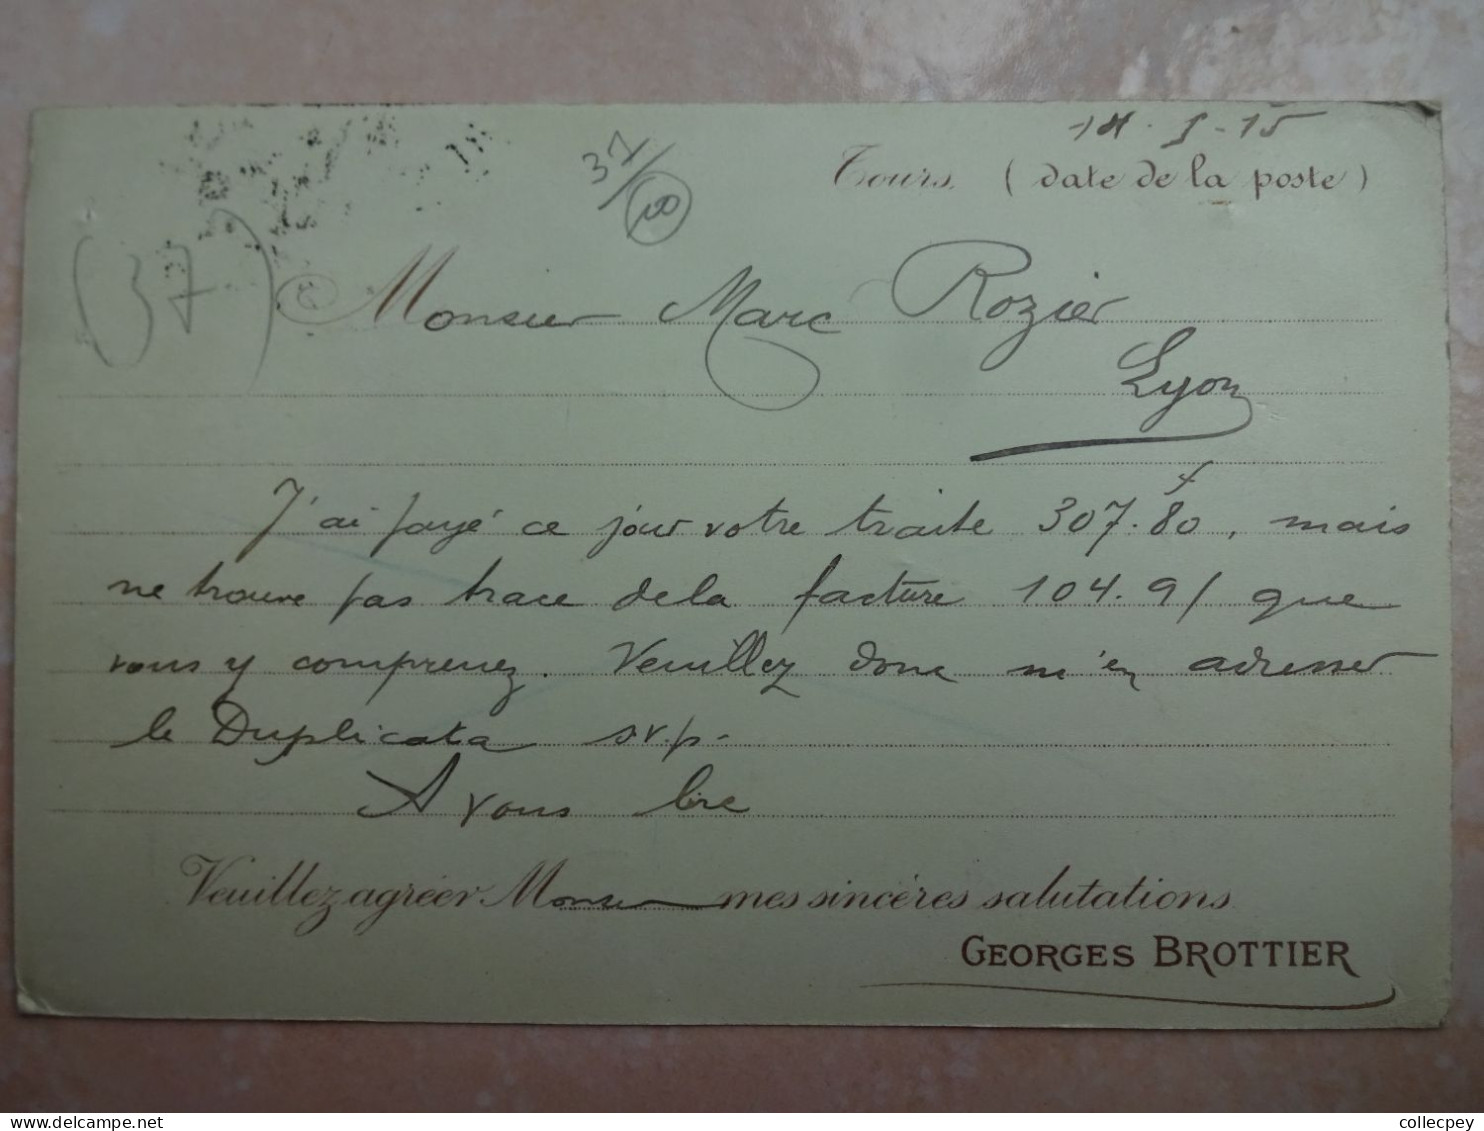 37/100
Tours, (date de la poste)
(37)
Monsieur Marc Rozier
Lyon
J'ai payé ce jour votre traite 307.80, mais
ne trouve pas trace de la facture 104.91 que
vous y comprenez. Veuillez donc m'en adresser
le Duplicata s.v.p.
A vous lire
Veuillez agréer Monsieur mes sincères salutations
GEORGES BROTTIER
www.delcampe.net
collecpey